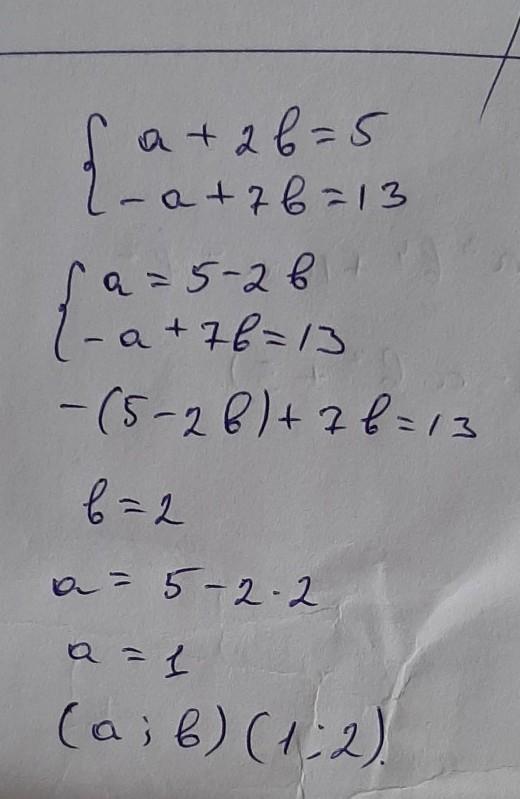 { a + 2b = 5
{ -a + 7b = 13
{ a = 5 - 2b
{ -a + 7b = 13
-(5 - 2b) + 7b = 13
b = 2
a = 5 - 2 · 2
a = 1
(a ; b) (1 ; 2).